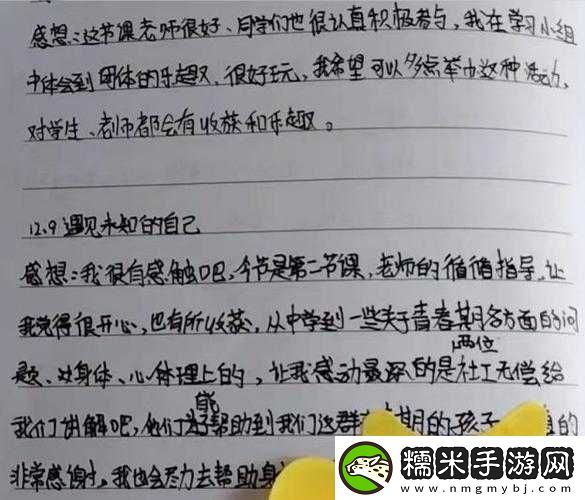 感想:这节课老师很好、同学们也很认真积极参与,我在学习小组
中体会到团体的乐趣,很好玩,我希望可以多点举办这种活动,
对学生、老师都会有收获和乐趣。
12.9 遇见未知的自己
感想:我很有感触吧,今节是第二节课,老师的循循指导,让
我觉得很开心,也有所收获,从中学到一些关于青春期各方面的问
两位
题、如身体、心体理上的,让我感动最深的是社工无偿给
能
我们讲解吧,他们帮助到我们这群 期的孩子 的
非常感谢,我也会尽力去帮助身
糯米手游网
www.nmgmybj.com